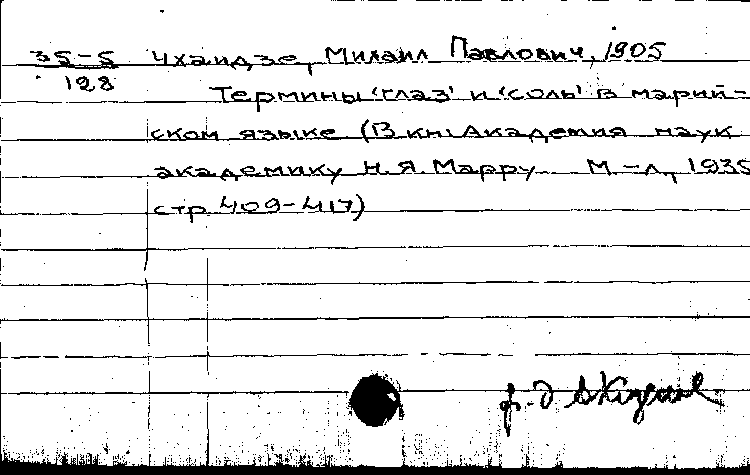 35-5 Чхаидзе, Михаил Павлович, 1905
128
Термины 'глаз' и 'соль' в марий-
ском языке (В кн: Академия наук
академику Н. Я. Марру М.-Л, 1935
стр 409-417)